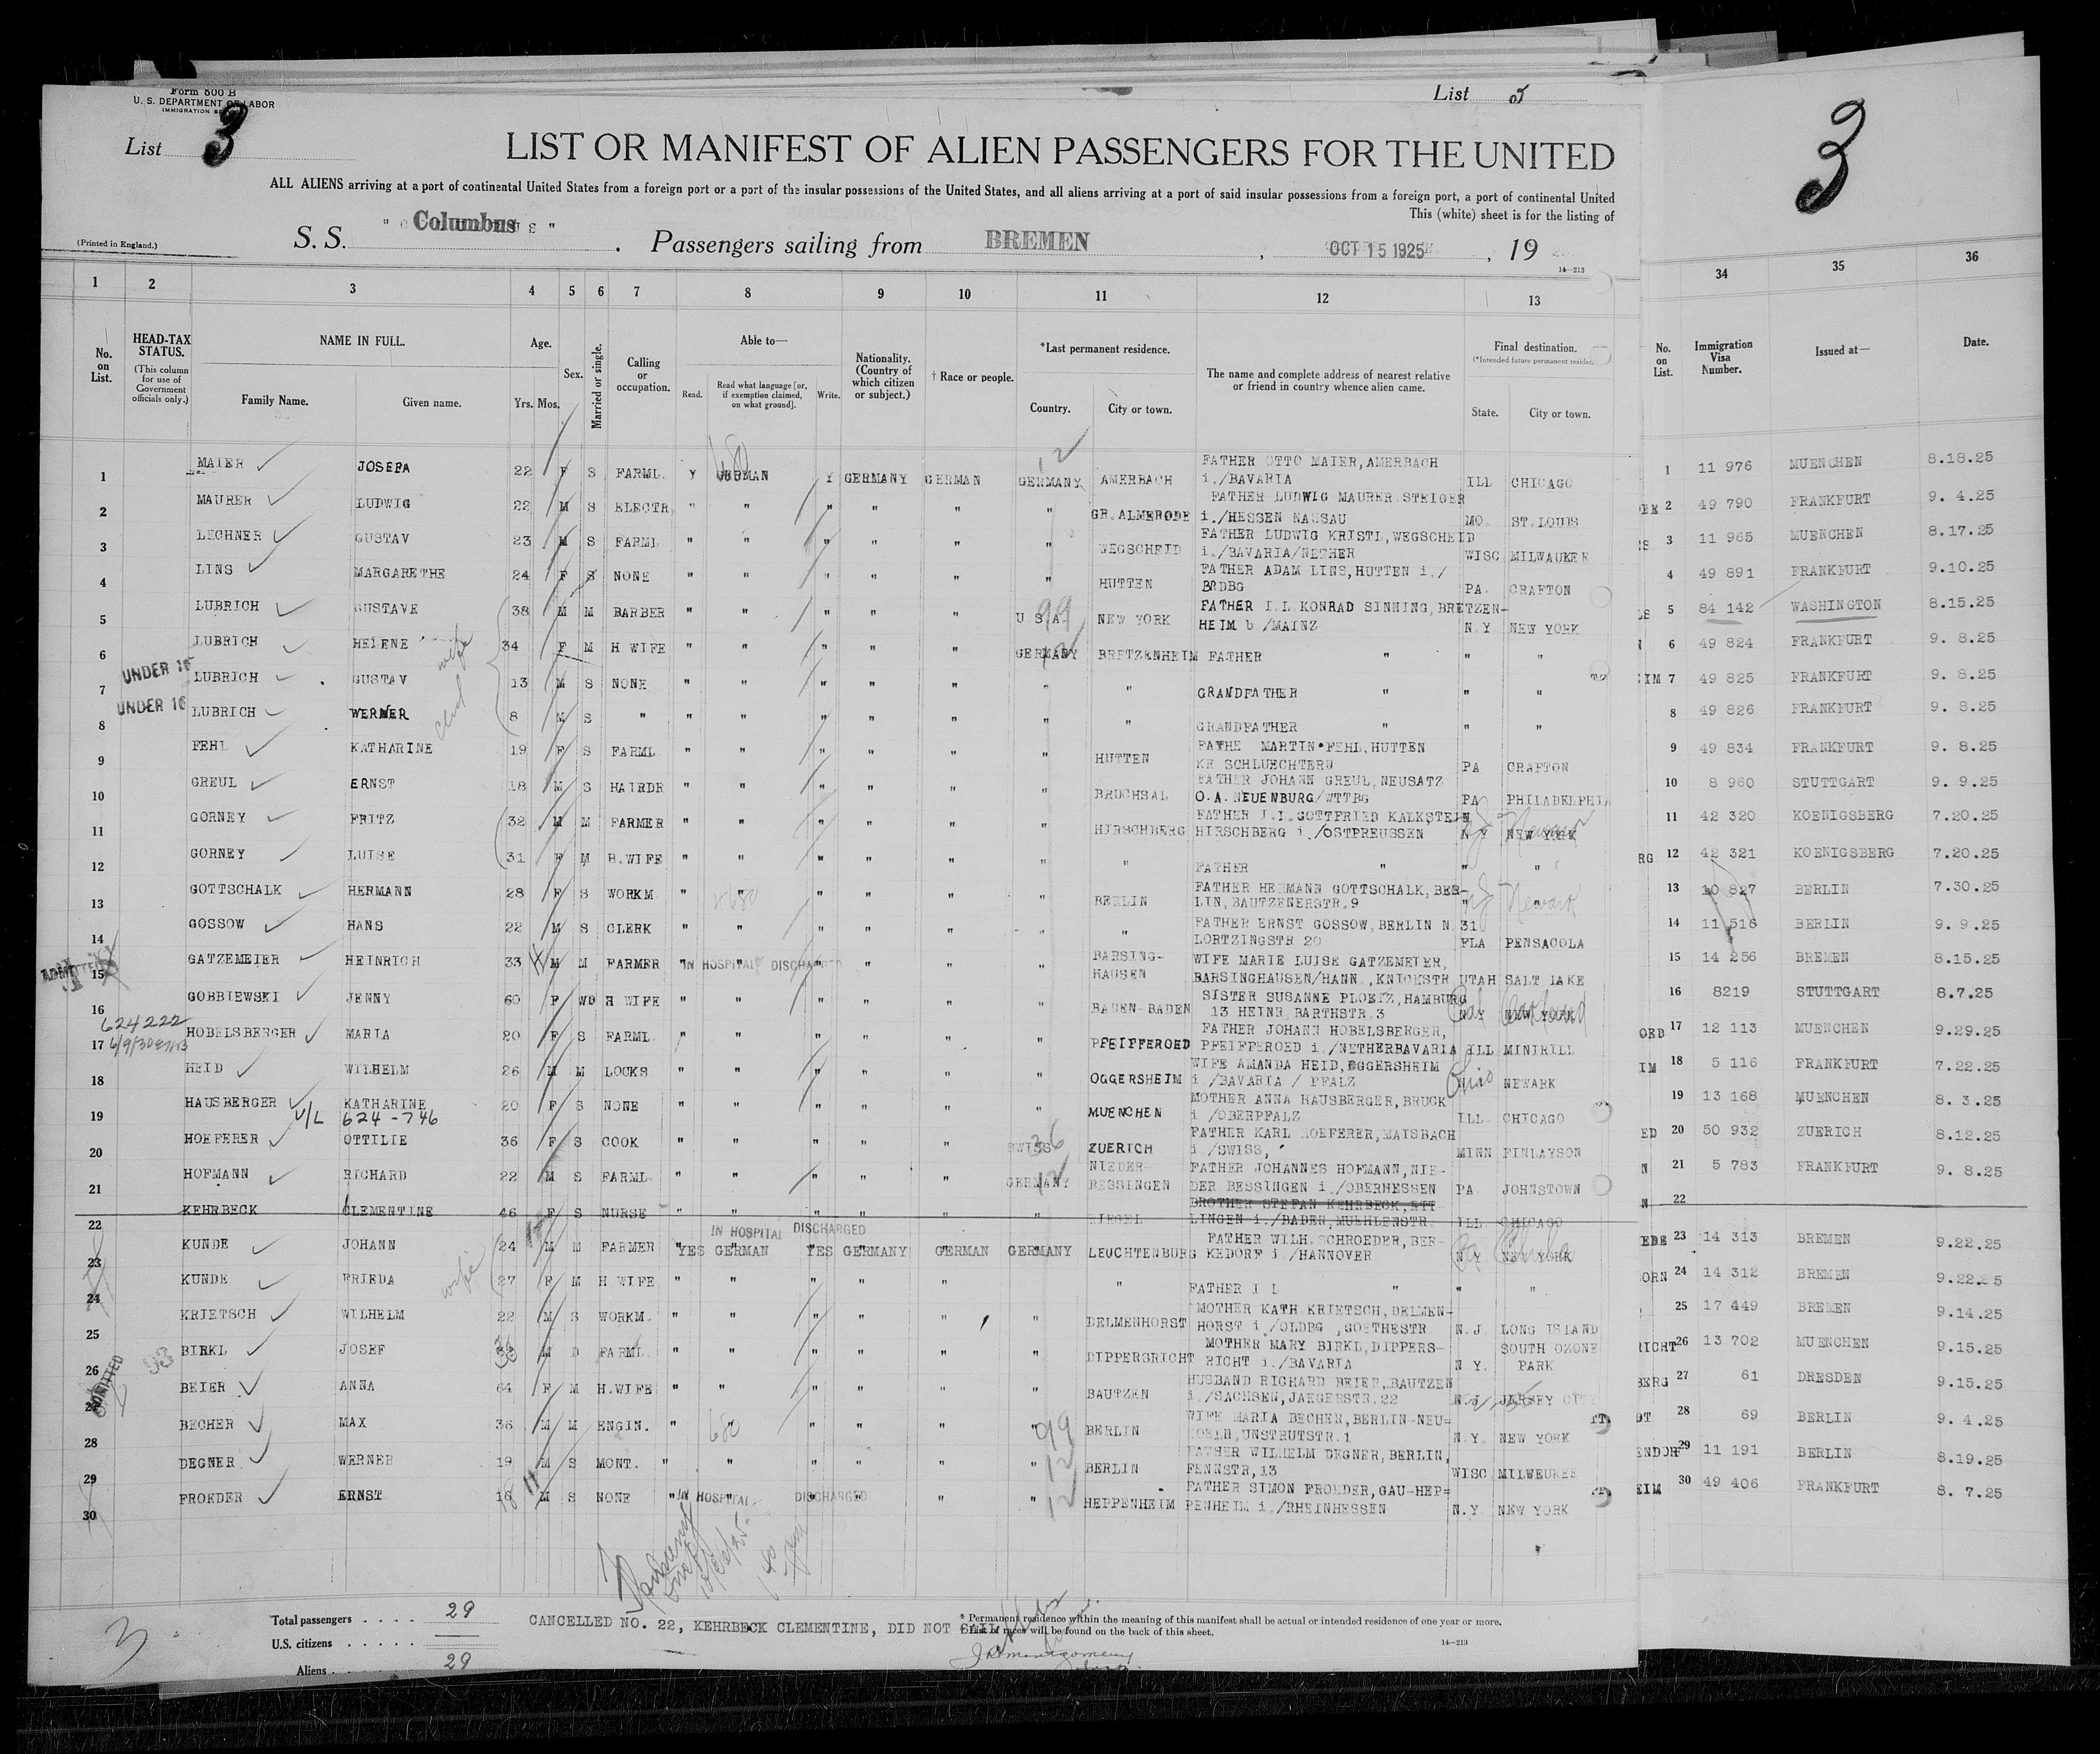 Form 500 B
U. S. DEPARTMENT OF LABOR
IMMIGRATION
List 3
List 3
3
LIST OR MANIFEST OF ALIEN PASSENGERS FOR THE UNITED
ALL ALIENS arriving at a port of continental United States from a foreign port or a port of the insular possessions of the United States, and all aliens arriving at a port of said insular possessions from a foreign port, a port of continental United
This (white) sheet is for the listing of
(Printed in England.)
S. S. " Columbus " . Passengers sailing from BREMEN , OCT 15 1925 , 19
14—213
1 2 3 4 5 6 7 8 9 10 11 12 13 34 35 36
No. on List.
HEAD-TAX STATUS.
(This column for use of Government officials only.)
NAME IN FULL.
Family Name. Given name.
Age.
Yrs. Mos.
Sex.
Married or single.
Calling or occupation.
Able to—
Read. Read what language [or, if exemption claimed, on what ground]. Write.
Nationality. (Country of which citizen or subject.)
† Race or people.
*Last permanent residence.
Country. City or town.
The name and complete address of nearest relative or friend in country whence alien came.
Final destination.
(*Intended future permanent
State. City or town.
No. on List.
Immigration Visa Number.
Issued at—
Date.
1 MAIER JOSEFA 22 F S FARML. Y GERMAN Y GERMANY GERMAN GERMANY AMERBACH FATHER OTTO MAIER, AMERBACH i./BAVARIA ILL CHICAGO 1 11 976 MUENCHEN 8.18.25
2 MAURER LUDWIG 22 M S ELECTR " " " " " " GR.ALMERODE FATHER LUDWIG MAURER STEIGER i./HESSEN NASSAU MO. ST.LOUIS 2 49 790 FRANKFURT 9. 4.25
3 LECHNER GUSTAV 23 M S FARML " " " " " " WEGSCHEID FATHER LUDWIG KRISTL, WEGSCHEID i./BAVARIA/NETHER WISC MILWAUKEE 3 11 965 MUENCHEN 8.17.25
4 LINS MARGARETHE 24 F S NONE " " " " " " HUTTEN FATHER ADAM LINS, HUTTEN i./ BRDBG PA. CRAFTON 4 49 891 FRANKFURT 9.10.25
5 LUBRICH GUSTAVE 38 M M BARBER " " " " " U S A. 99 NEW YORK FATHER I.L KONRAD SINNING, BRETZEN- HEIM b /MAINZ N.Y NEW YORK 5 84 142 WASHINGTON 8.15.25
6 LUBRICH HELENE wife 34 F M H WIFE " " " " " GERMANY BRETZENHEIM FATHER " " " 6 49 824 FRANKFURT 9. 8.25
UNDER 16 7 LUBRICH GUSTAV 13 M S NONE " " " " " " " GRANDFATHER " " " 7 49 825 FRANKFURT 9. 8.25
UNDER 16 8 LUBRICH WERNER 8 M S " " " " " " " " GRANDFATHER " " " 8 49 826 FRANKFURT 9. 8.25
9 FEHL KATHARINE 19 F S FARML " " " " " " HUTTEN FATHE MARTIN FEHL, HUTTEN KR SCHLUECHTERN PA CRAFTON 9 49 834 FRANKFURT 9. 8.25
10 GREUL ERNST 18 M S HAIRDR " " " " " " BRUCHSAL FATHER JOHANN GREUL, NEUSATZ O.A.NEUENBURG/WTTBG PA PHILADELPHI 10 8 960 STUTTGART 9. 9.25
11 GORNEY FRITZ 32 M M FARMER " " " " " " HIRSCHBERG FATHER I.I.GOTTFRIED KALKSTEIN HIRSCHBERG i./OSTPREUSSEN N Y NEW YORK 11 42 320 KOENIGSBERG 7.20.25
12 GORNEY LUISE 31 F M H.WIFE " " " " " " " FATHER " " " 12 42 321 KOENIGSBERG 7.20.25
13 GOTTSCHALK HERMANN 28 F S WORKM " " " " " " BERLIN FATHER HERMANN GOTTSCHALK, BER- LIN, BAUTZENERSTR.9 " " Newark 13 10 827 BERLIN 7.30.25
14 GOSSOW HANS 22 M S CLERK " " " " " " " FATHER ERNST GOSSOW, BERLIN N 31 LORTZINGSTR 20 FLA PENSACOLA 14 11 516 BERLIN 9. 9.25
ADMITTED 15 GATZEMEIER HEINRICH 33 M M FARMER IN HOSPITAL DISCHARGED " " " BARSING- HAUSEN WIFE MARIE LUISE GATZEMEIER, BARSINGHAUSEN/HANN., KNICKSTR UTAH SALT LAKE 15 14 256 BREMEN 8.15.25
16 GOBBIEWSKI JENNY 60 F WD H WIFE " " " " " " BADEN-BADEN SISTER SUSANNE PLOETZ, HAMBURG 13 HEINR. BARTHSTR.3 N.Y NEW YORK 16 8219 STUTTGART 8.7.25
624222
17 HOBELSBERGER MARIA 20 F S FARML. " " " " " " PFEIFFEROED FATHER JOHANN HOBELSBERGER, PFEIFFEROED i./NETHERBAVARIA ILL MINIHILL 17 12 113 MUENCHEN 9.29.25
18 HEID WILHELM 26 M M LOCKS " " " " " " OGGERSHEIM WIFE AMANDA HEID, OGGERSHEIM i /BAVARIA / PFALZ Ohio NEWARK 18 5 116 FRANKFURT 7.22.25
19 HAUSBERGER KATHARINE 20 F S NONE " " " " " " MUENCHEN MOTHER ANNA HAUSBERGER, BRUCK i /OBERPFALZ ILL. CHICAGO 19 13 168 MUENCHEN 8. 3.25
V/L 624-746
20 HOEFERER OTTILIE 36 F S COOK " " " " " SWISS 36 ZUERICH FATHER KARL HOEFERER, MAISBACH i /SWISS, MINN FINLAYSON 20 50 932 ZUERICH 8.12.25
21 HOFMANN RICHARD 22 M S FARML " " " " " GERMANY NIEDER- BESSINGEN FATHER JOHANNES HOFMANN, NIE- DER BESSINGEN i./OBERHESSEN PA. JOHNSTOWN 21 5 783 FRANKFURT 9. 8.25
22 KEHRBECK CLEMENTINE 46 F S NURSE " " " " " " RIEGEL BROTHER STEFAN KEHRBECK, ETT LINGEN i./BADEN, MUEHLENSTR. ILL CHICAGO 22
IN HOSPITAL DISCHARGED
23 KUNDE JOHANN 24 M M FARMER YES GERMAN YES GERMANY GERMAN GERMANY LEUCHTENBURG FATHER WILH. SCHROEDER, BER- KEDORF i./HANNOVER N.Y NEW YORK 23 14 313 BREMEN 9.22.25
24 KUNDE wife FRIEDA 27 F M H WIFE " " " " " " " FATHER I L " " " 24 14 312 BREMEN 9.22.25
25 KRIETSCH WILHELM 22 M S WORKM. " " " " " " DELMENHORST MOTHER KATH KRIETSCH, DELMEN- HORST i./OLDBG ,GOETHESTR N.J. LONG ISLAND 25 17 449 BREMEN 9.14.25
26 BIRKL JOSEF M D FARML. " " " " " " DIPPERSRICHT MOTHER MARY BIRKL, DIPPERS- RICHT i./BAVARIA N Y. SOUTH OZONE PARK 26 13 702 MUENCHEN 9.15.25
ADMITTED BEIER ANNA 64 F M H.WIFE " " " " " " BAUTZEN HUSBAND RICHARD BEIER, BAUTZEN i./SACHSEN, JAEGERSTR.22 N.J. JERSEY CITY 27 61 DRESDEN 9.15.25
28 BECHER MAX 36 M M ENGIN. " 680 " " " " 99 BERLIN WIFE MARIA BECHER, BERLIN-NEU= KOELN, UNSTRUTSTR.1 N.Y. NEW YORK 28 69 BERLIN 9. 4.25
29 DEGNER WERNER 19 M S MONT. " " " " " " BERLIN FATHER WILHELM DEGNER, BERLIN, FENNSTR, 13 WISC MILWEUKEE 29 11 191 BERLIN 8.19.25
30 FROEDER ERNST 18 M S NONE IN HOSPITAL DISCHARGED " " 12 HEPPENHEIM FATHER SIMON FROEDER, GAU-HEP= PENHEIM i./RHEINHESSEN N.Y. NEW YORK 30 49 406 FRANKFURT 8. 7.25
3
Total passengers . . . . 29
U.S. citizens . . . . .
Aliens . . . . 29
CANCELLED NO. 22, KEHRBECK CLEMENTINE, DID NOT SAIL.
* Permanent residence within the meaning of this manifest shall be actual or intended residence of one year or more.
† List of races will be found on the back of this sheet.
14—213